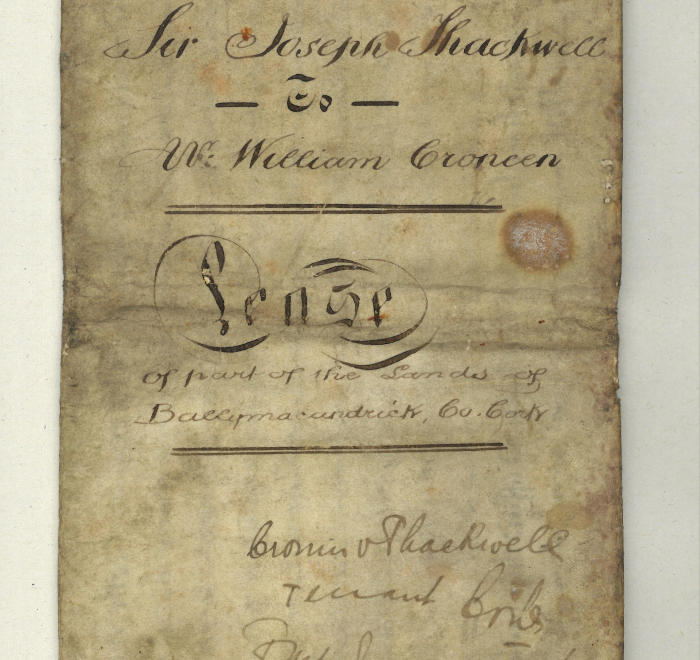 Sir Joseph Thackwell
— To —
Wm William Croneen
Lease
of part of the Lands of
Ballymacandrick, Co. Cork
Cronin v Thackwell
Tenant